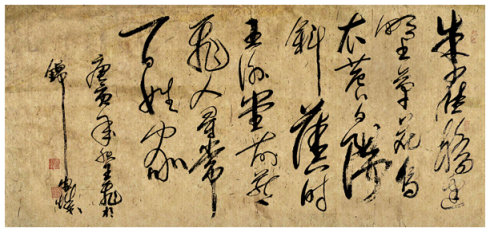 朱雀橋邊
野草花烏
衣巷口夕陽
斜舊時
王謝堂前燕
飛入尋常
百姓家
庚寅年
錦